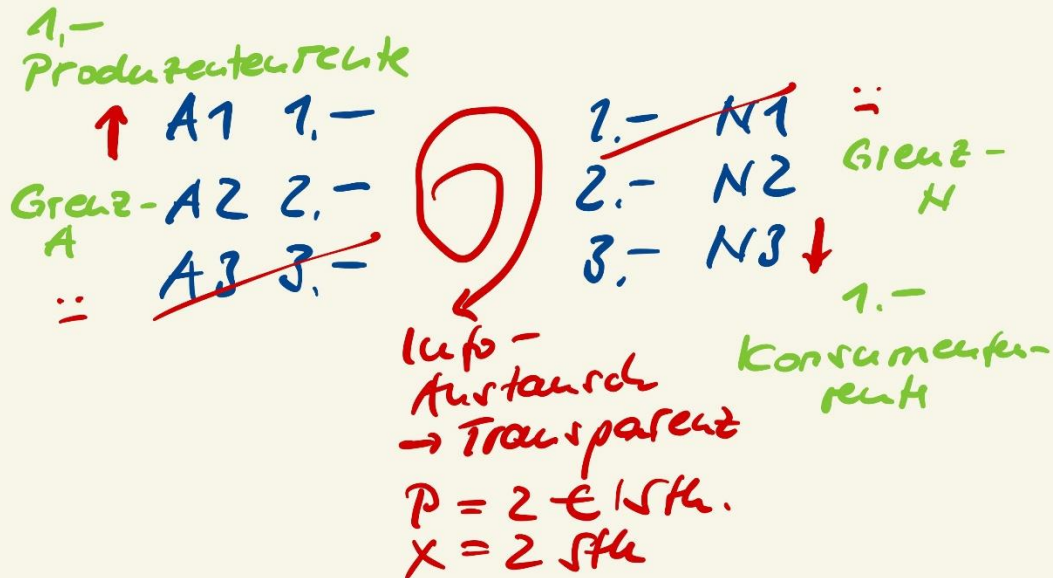 1,-
Produzentenrente
↑ A1 1,-
Grenz- A2 2,-
A
A3 3,-
1.- N1
2.- N2
3.- N3 ↓
Grenz-
N
1.-
Konsumenten-
rente
Info-
Austausch
→ Transparenz
P = 2 € / Stk.
x = 2 Stk